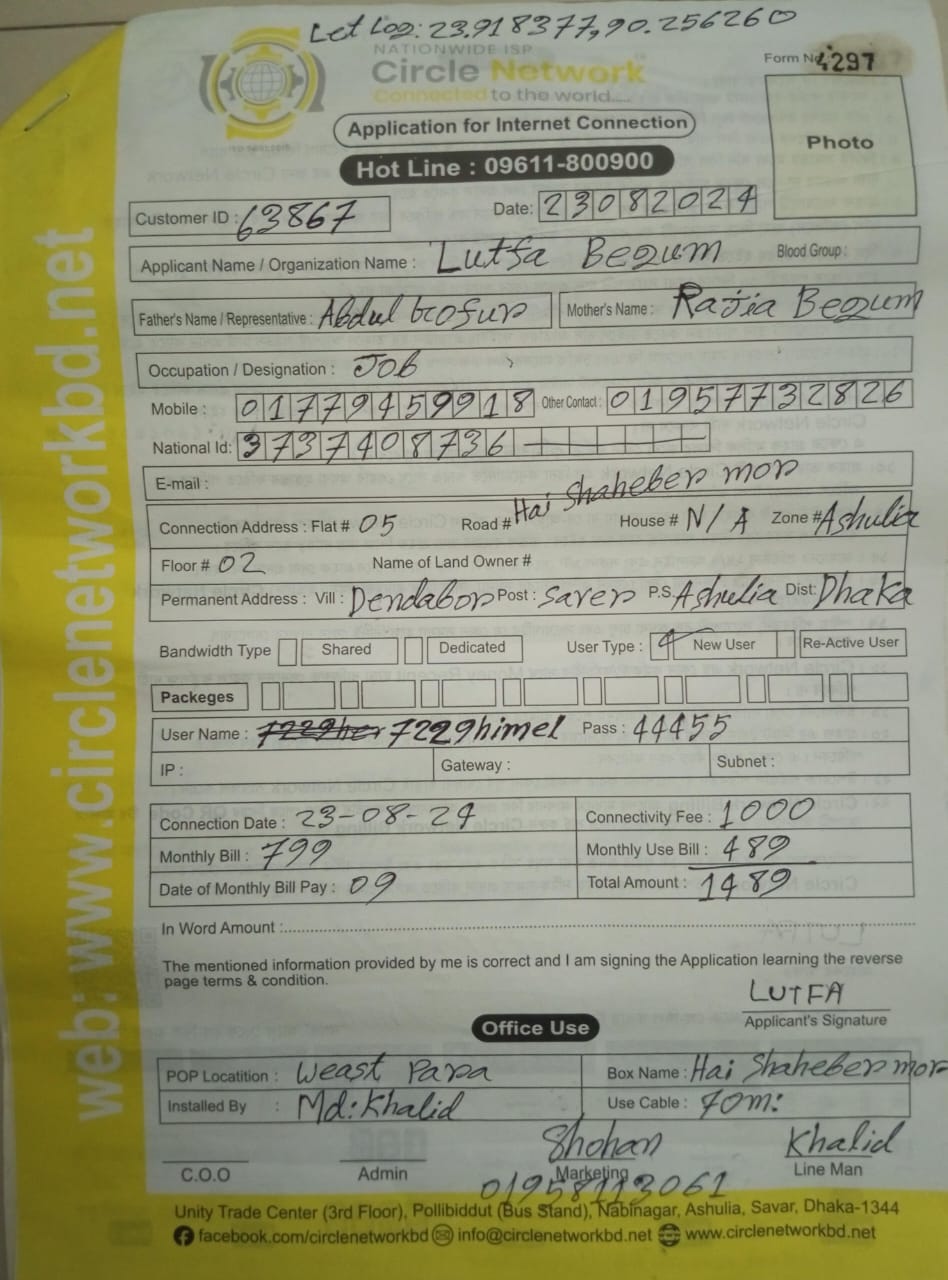 Let Log: 23.918377,90.256260
NATIONWIDE ISP
Circle Network
Connected to the world.....
Form No 4297
Application for Internet Connection
Photo
Hot Line : 09611-800900
Customer ID : 63867 Date: 23082024
Applicant Name / Organization Name : Lutfa Begum Blood Group :
Father's Name / Representative : Abdul Gofur Mother's Name : Rajia Begum
Occupation / Designation : Job
Mobile : 01779459918 Other Contact : 01957732826
National Id: 3737408736
E-mail :
Connection Address : Flat # 05 Road # Hai Shaheber mor House # N/A Zone # Ashulia
Floor # 02 Name of Land Owner #
Permanent Address : Vill : Dendabor Post : Saver P.S. Ashulia Dist: Dhaka
Bandwidth Type Shared Dedicated User Type : New User Re-Active User
Packeges
User Name : 7229himel Pass : 44455
IP : Gateway : Subnet :
Connection Date : 23-08-24 Connectivity Fee : 1000
Monthly Bill : 799 Monthly Use Bill : 489
Date of Monthly Bill Pay : 09 Total Amount : 1489
In Word Amount :
The mentioned information provided by me is correct and I am signing the Application learning the reverse
page terms & condition.
LUTFA
Applicant's Signature
Office Use
POP Locatition : Weast Para Box Name : Hai Shaheber mor
Installed By : Md: Khalid Use Cable : 40m:
Shohan Khalid
C.O.O Admin Marketing Line Man
01958113061
Unity Trade Center (3rd Floor), Pollibiddut (Bus Stand), Nabinagar, Ashulia, Savar, Dhaka-1344
facebook.com/circlenetworkbd info@circlenetworkbd.net www.circlenetworkbd.net
web: www.circlenetworkbd.net